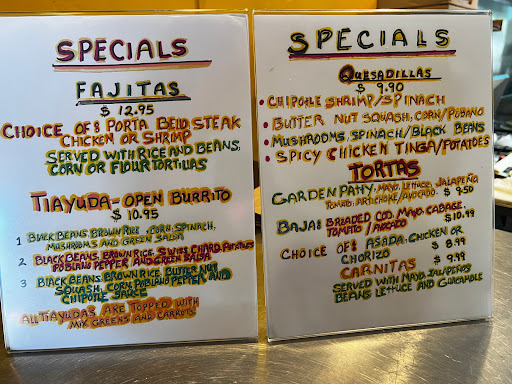 SPECIALS
FAJITAS
$ 12.95
CHOICE OF: PORTA BELO, STEAK
CHICKEN OR SHRIMP
SERVED WITH RICE AND BEANS,
CORN OR FLOUR TORTILLAS
TLAYUDA-OPEN BURRITO
$ 10.95
1 BLACK BEANS, BROWN RICE, CORN, SPINACH,
MUSHROOMS AND GREEN SALSA
2 BLACK BEANS, BROWN RICE, SWISS CHARD, POTATOES
POBLANO PEPPER AND GREEN SALSA
3 BLACK BEANS, BROWN RICE, BUTTER NUT
SQUASH, CORN, POBLANO PEPPER AND
CHIPOTLE SAUCE
ALL TLAYUDAS ARE TOPPED WITH
MIX GREENS AND CARROTS.
SPECIALS
QUESADILLAS
$ 9.90
• CHIPOTLE SHRIMP/SPINACH
• BUTTER NUT SQUASH, CORN/POBANO
• MUSHROOMS, SPINACH/BLACK BEANS
• SPICY CHICKEN TINGA/POTATOES
TORTAS
GARDEN PATTY, MAYO, LETTUCE, JALAPEÑO
TOMATO, ARTICHOKE/AVOCADO. $ 9.50
BAJA: BREADED COD, MAYO, CABAGE, $10.99
TOMATO / AVOCADO
CHOICE OF: ASADA, CHICKEN OR
CHORIZO $ 8.99
CARNITAS $ 9.99
SERVED WITH MAYO, JALAPEÑOS
BEANS LETTUCE AND GUACAMBLE